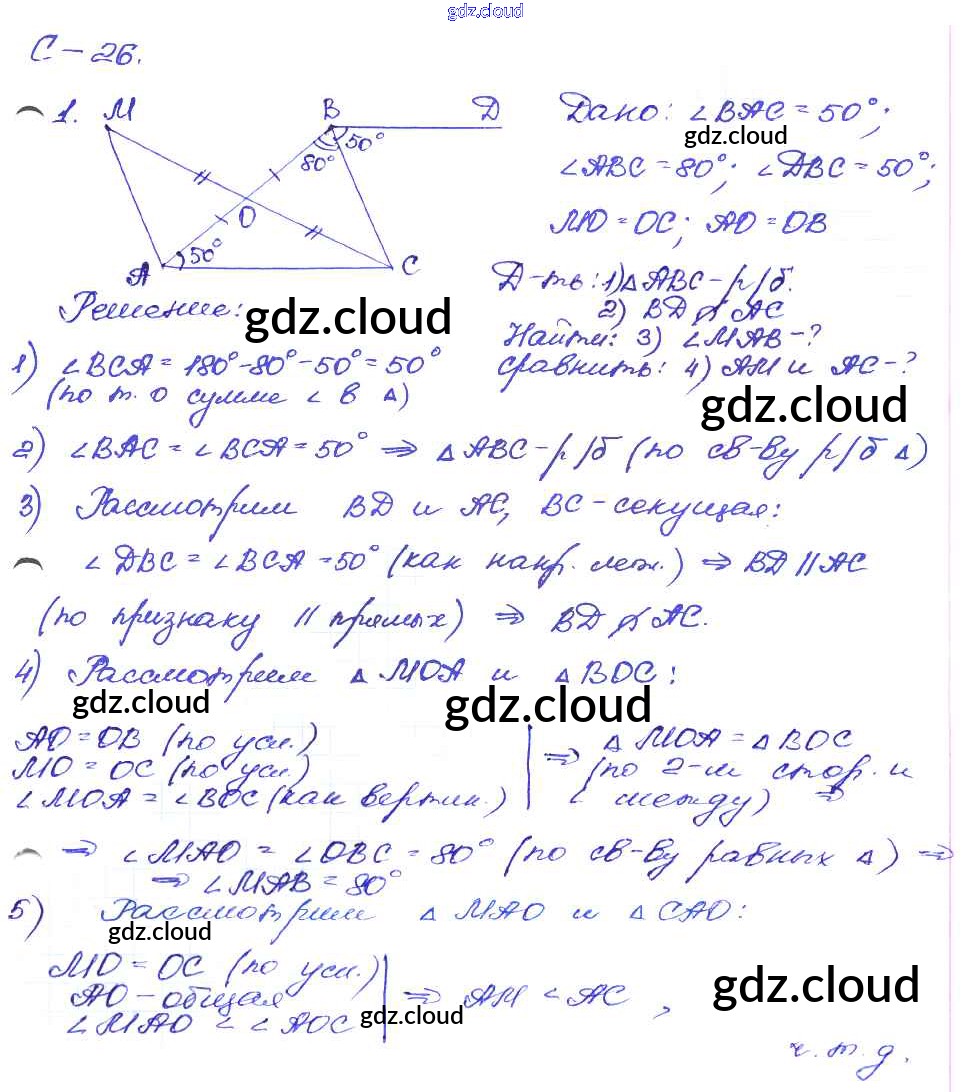 gdz.cloud
С-26.
1. М В D
50°
80°
О
50°
А С
Дано: ∠BAC = 50°;
gdz.cloud
∠ABC = 80°; ∠DBC = 50°;
MO = OC; AO = OB
Д-ть: 1) △ABC - р/б.
2) BD ∦ AC
Найти: 3) ∠MAB - ?
Сравнить: 4) AM и AC - ?
gdz.cloud
Решение:
gdz.cloud
1) ∠BCA = 180° - 80° - 50° = 50°
(по т. о сумме ∠ в △)
2) ∠BAC = ∠BCA = 50° ⇒ △ABC - р/б (по св-ву р/б △)
3) Рассмотрим BD и AC, BC - секущая:
∠DBC = ∠BCA = 50° (как накр. леж.) ⇒ BD || AC
(по признаку || прямых) ⇒ BD ∦ AC.
4) Рассмотрим △MOA и △BOC:
gdz.cloud gdz.cloud
AO = OB (по усл.)
MO = OC (по усл.)
∠MOA = ∠BOC (как вертик.)
⇒ △MOA = △BOC
(по 2-м стор. и
∠ между) ⇒
⇒ ∠MAO = ∠OBC = 80° (по св-ву равных △) ⇒
⇒ ∠MAB = 80°
5) Рассмотрим △MAO и △CAO:
gdz.cloud
MO = OC (по усл.)
AO - общая
∠MAO < ∠AOC
⇒ AM < AC,
gdz.cloud
gdz.cloud
ч.т.д.